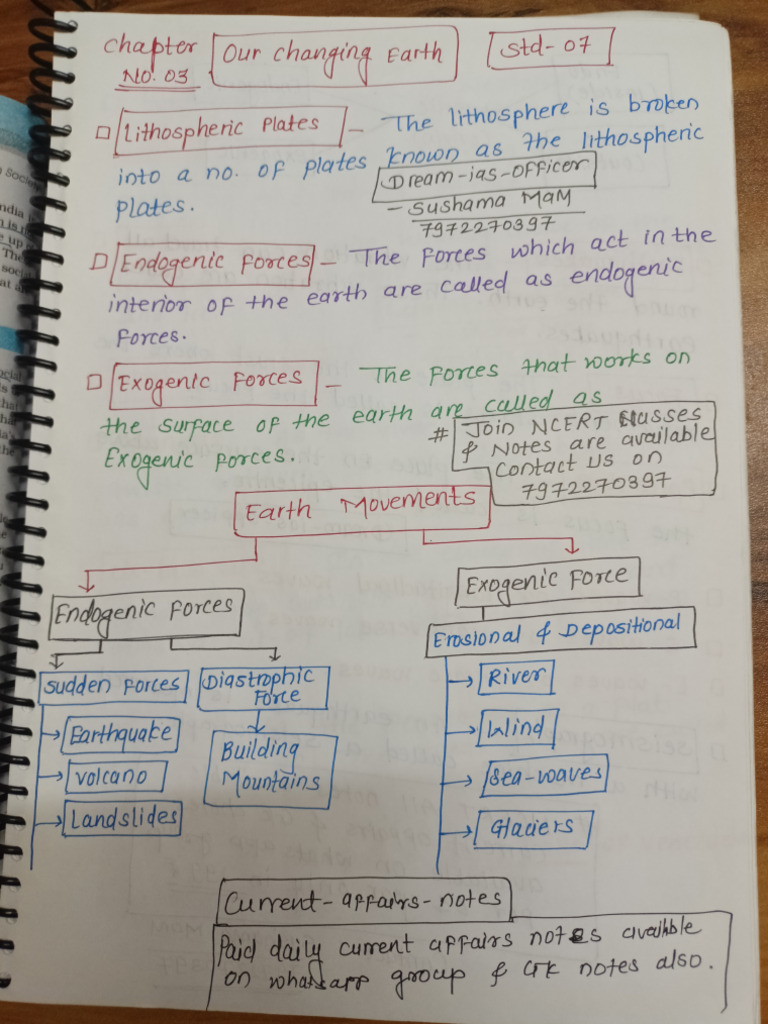 Chapter No. 03
Our changing Earth
Std-07
Lithospheric Plates – The lithosphere is broken
into a no. of plates known as the lithospheric
plates.
Dream-ias-officer
- Sushama MaM
7972270397
Endogenic Forces – The Forces which act in the
interior of the earth are called as endogenic
Forces.
Exogenic Forces – The Forces that works on
the surface of the earth are called as
Exogenic forces.
# Join NCERT Classes
& Notes are available
Contact Us on
7972270397
Earth Movements
Endogenic Forces
Exogenic Force
Sudden Forces
Earthquake
Volcano
Landslides
Diastrophic
Force
Building
Mountains
Erosional & Depositional
River
Wind
Sea-waves
Glaciers
Current-affairs-notes
Paid daily current affairs notes available
on whatsapp group & GK notes also.